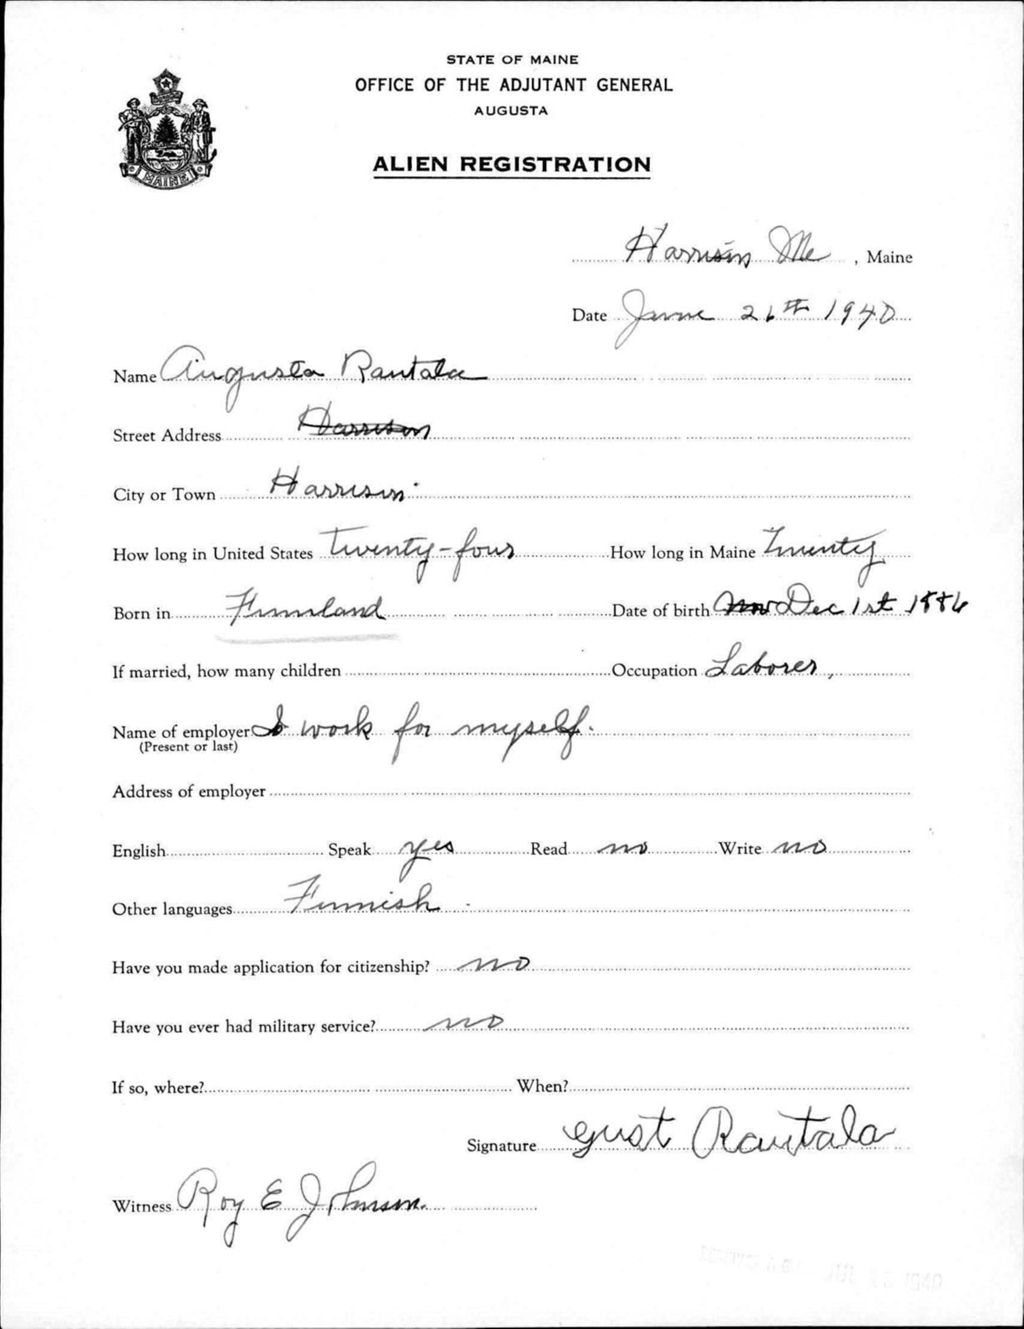 STATE OF MAINE
OFFICE OF THE ADJUTANT GENERAL
AUGUSTA
ALIEN REGISTRATION
MAINE
Harrison Me, Maine
Date June 26th 1940
Name Augusta Rautala
Street Address Harrison
City or Town Harrison
How long in United States Twenty-four How long in Maine Twenty
Born in Finnland Date of birth Nov Dec 1st 1886
If married, how many children Occupation Laborer,
Name of employer I work for myself.
(Present or last)
Address of employer
English Speak yes Read no Write no
Other languages Finnish
Have you made application for citizenship? no
Have you ever had military service? no
If so, where? When?
Signature gust Rautala
Witness Roy E Johnson.